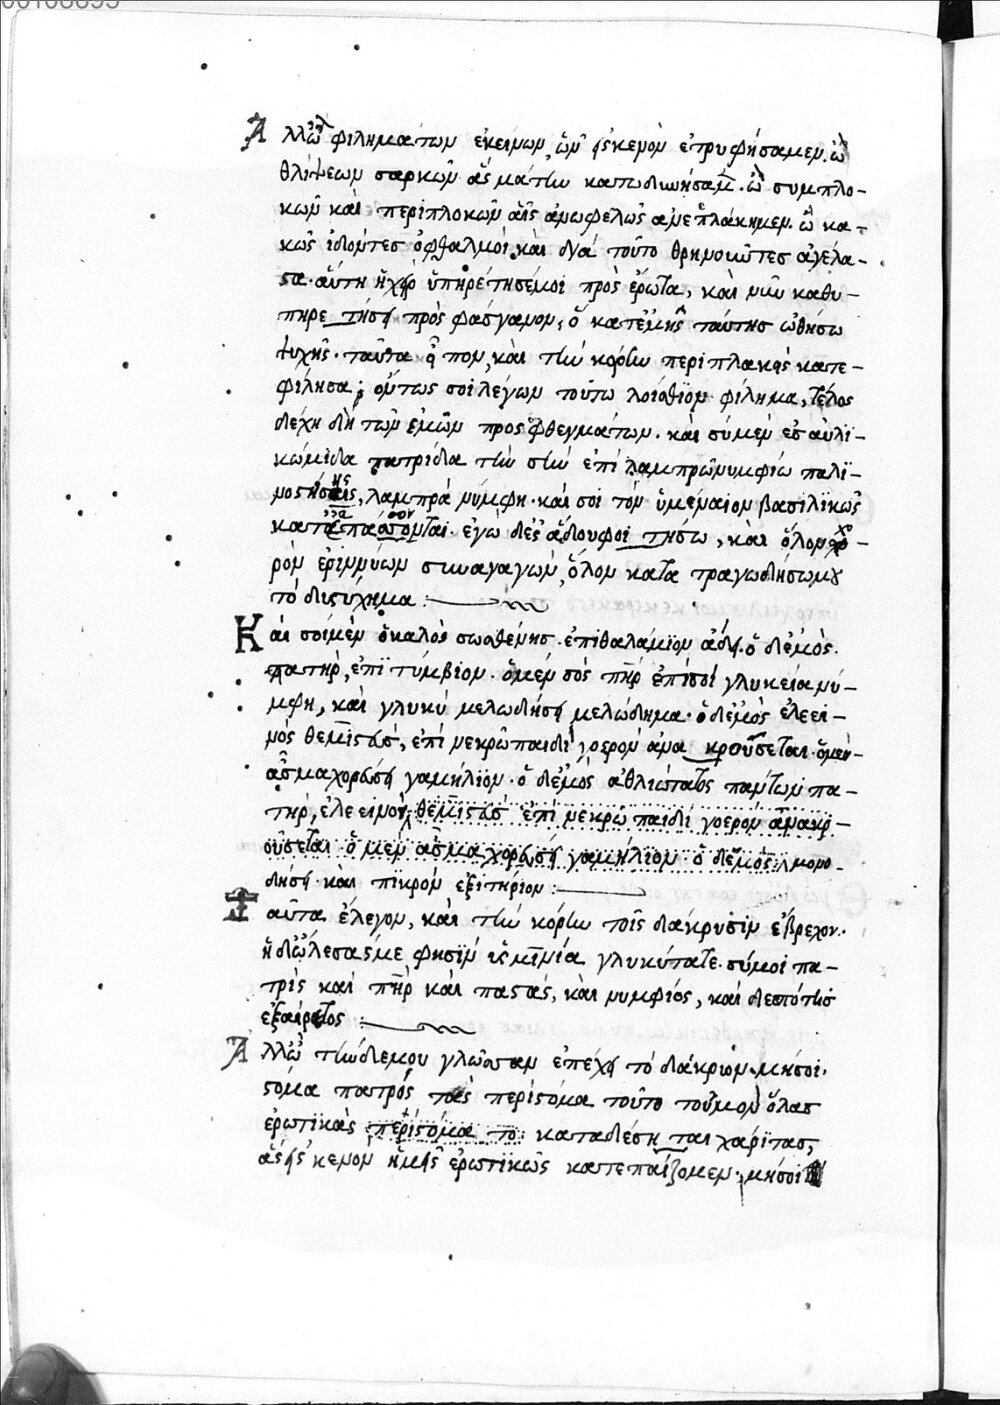 Ἀλλ' ὢ φιλημάτων ἐκείνων, ὧν εἰς κενὸν ἐτρυφήσαμεν. ὢ
θλίψεων σαρκῶν ἃς μάτην κατωδινήσαμεν. ὢ συμπλο-
κῶν καὶ περιπλοκῶν αἷς ἀνωφελῶς ἀνεπλάκημεν. ὢ κα-
κῶς ἰδόντες ὀφθαλμοὶ, καὶ διὰ τοῦτο θρηνοῦντες ἀγέλα-
στα. αὕτη ἡ χεὶρ ὑπηρέτησέ μοι πρὸς ἔρωτα, καὶ νῦν καθυ-
πηρετήσει πρὸς φάσγανον, ὃ κατ' ἐμῆς ταύτης ὠθήσω
ψυχῆς. ταῦτα εἶπον, καὶ τὴν κόρην περιπλακεὶς κατε-
φίλησα; οὕτως σοι λέγων τοῦτο λοίσθιον φίλημα, τέλος
δέχῃ δὴ τῶν ἐμῶν προσφθεγμάτων. καὶ σὺ μὲν ἐς αὐλι-
κώμιδα πατρίδα τὴν σὴν ἐπὶ λαμπρῷ νυμφίῳ παλι-
λαμπρὰ νύμφη. καὶ σοὶ τὸν ὑμέναιον βασιλικῶς
ἐγὼ δ' ἐς ᾅδου φοιτήσω, καὶ ὅλον χο-
ρὸν ἐριννύων συναγαγὼν, ὅλον κατατραγωδήσω μου
τὸ δυστύχημα
Καὶ σοὶ μὲν ὁ καλὸς σωσθένης ἐπιθαλάμιον ᾄδει. ὁ δ' ἐμὸς
πατὴρ, ἐπιτύμβιον. ὁ μὲν σὸς πηρ ἐπὶ σοὶ γλυκεία νύ-
μφη, καὶ γλυκὺ μελωδήσει μελώδημα. ὁ δ' ἐμὸς ἐλεει-
νὸς θεμιστεὺς, ἐπὶ νεκρῶ παιδὶ γοερὸν ἀνακρούσεται. ὁ μὲν
ᾆσμα χορεύσει γαμήλιον. ὁ δ' ἐμὸς ἀθλιώτατος πάντων πα-
τὴρ, ἐλεεινὸν θεμιστεὺς ἐπὶ νεκρῶ παιδὶ γοερὸν ἀνακρ-
ούσεται. ὁ μὲν ᾆσμα χορεύσει γαμήλιον ὁ δ' ἐμὸς μονω-
δήσει καὶ πικρὸν ἐξιτήριον
Ταῦτα ἔλεγον, καὶ τὴν κόρην τοῖς δάκρυσιν ἔβρεχον.
ἡ δ' ὤλεσάς με φησὶν ὑσμινία γλυκύτατε. σύ μοι πα-
τρὶς καὶ πηρ καὶ παστὰς, καὶ νυμφίος, καὶ δεσπότης
ἐξαίρετος
Ἀλλὰ τὴν δ' ἐμοῦ γλῶσσαν ἐπέχει τὸ δάκρυον. νῆσοι
στόμα πατρὸς περιστόμα τοῦτο τοὐμὸν ὅλας
ἐρωτικὰς περιστόμα το καταδέσῃ ται χάριτας,
ἃς εἰς κενὸν ἡμεῖς ἐρωτικῶς κατεπαίζομεν.